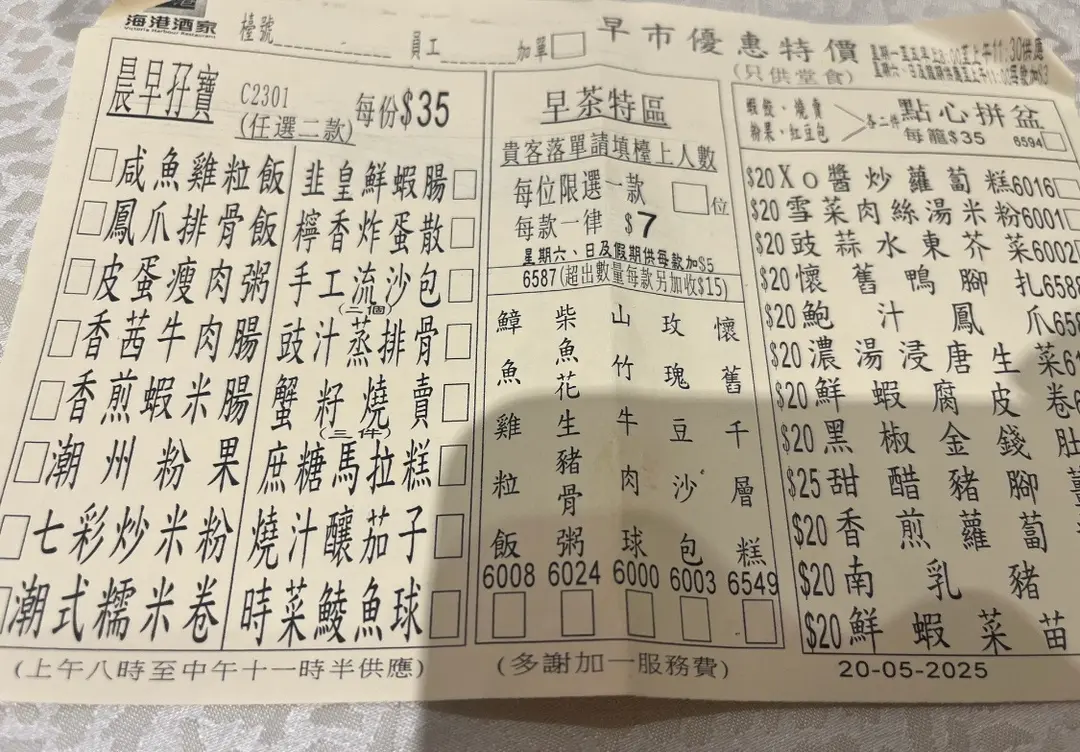 海港酒家
Victoria Harbour Restaurant
檯號
員工
加單
早市優惠特價
(只供堂食)
晨早孖寶
C2301
(任選二款)
每份$35
咸魚雞粒飯
鳳爪排骨飯
皮蛋瘦肉粥
香茜牛肉腸
香煎蝦米腸
潮州粉果
七彩炒米粉
潮式糯米卷
韭皇鮮蝦腸
檸香炸蛋散
手工流沙包
(二個)
豉汁蒸排骨
蟹籽燒賣
(三件)
庶糖馬拉糕
燒汁釀茄子
時菜鯪魚球
(上午八時至中午十一時半供應)
早茶特區
貴客落單請填檯上人數
每位限選一款
位
每款一律 $7
星期六、日及假期供每款加$5
6587(超出數量每款另加收$15)
鱆魚雞粒飯
6008
柴魚花生豬骨粥
6024
山竹牛肉球
6000
玫瑰豆沙包
6003
懷舊千層糕
6549
(多謝加一服務費)
蝦餃、燒賣
粉果、紅豆包
各二件
點心拼盆
每籠$35
6594
$20XO醬炒蘿蔔糕6016
$20雪菜肉絲湯米粉6001
$20豉蒜水東芥菜6002
$20懷舊鴨腳扎658
$20鮑汁鳳爪65
$20濃湯浸唐生菜6
$20鮮蝦腐皮卷6
$20黑椒金錢肚
$25甜醋豬腳薑
$20香煎蘿蔔
$20南乳豬
$20鮮蝦菜苗
20-05-2025